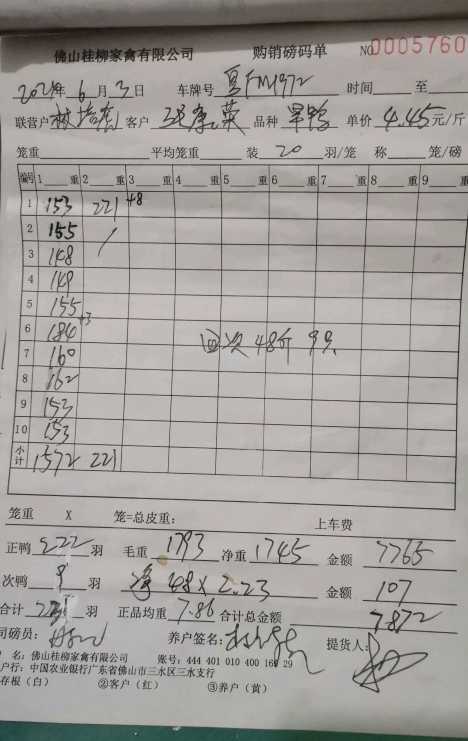 佛山桂柳家禽有限公司 购销磅码单 NO 0005760
2021年 6月 3日 车牌号 FM1972 时间 至
联营户 客户 张康英 品种 单价 4.45元/斤
笼重 平均笼重 装 20 羽/笼 称 笼/磅
编号 1 重 2 重 3 重 4 重 5 重 6 重 7 重 8 重 9 重
1 153 221 +8
2 155
3 148
4 149
5 155
6 184 +3 回次 48斤 9只
7 160
8 162
9 153
10 153
小计 1572 221
笼重 X 笼=总皮重: 上车费
正鸭 222 羽 毛重 1793 净重 1745 金额 7765
次鸭 9 羽 净 48 X 2.23 金额 107
合计 231 羽 正品均重 7.86 合计总金额 7872
司磅员: 养户签名: 提货人:
名: 佛山桂柳家禽有限公司 账号: 444 401 010 400 169 29
户行: 中国农业银行广东省佛山市三水区三水支行
存根(白) ②客户(红) ③养户(黄)